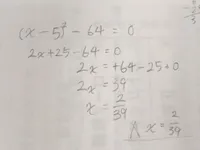 (x - 5)² - 64 = 0
2x + 25 - 64 = 0
2x = +64 - 25 + 0
2x = 39
x = 2/39
x = 2/39